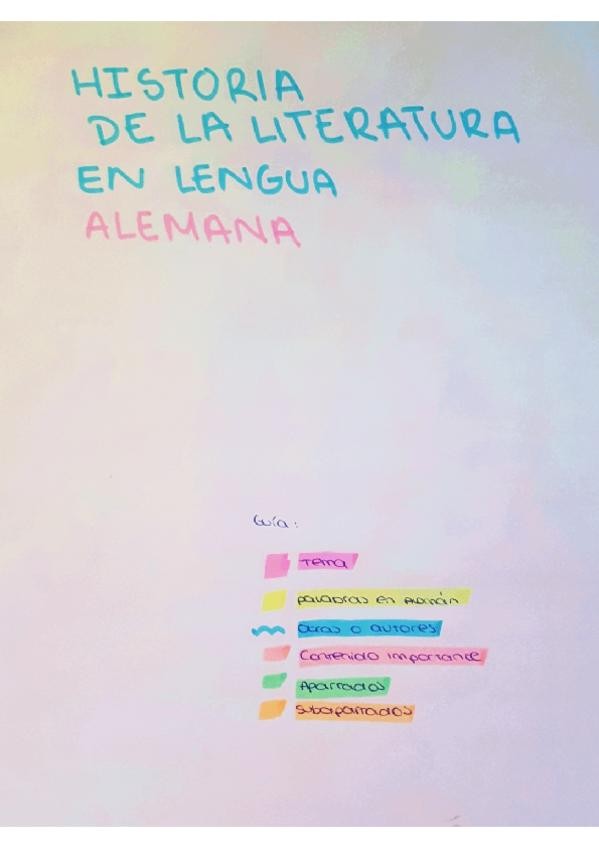 HISTORIA
DE LA LITERATURA
EN LENGUA
ALEMANA
Guía:
Tema
palabras en Alemán
obras o autores
Contenido importante
Apartados
Subapartados